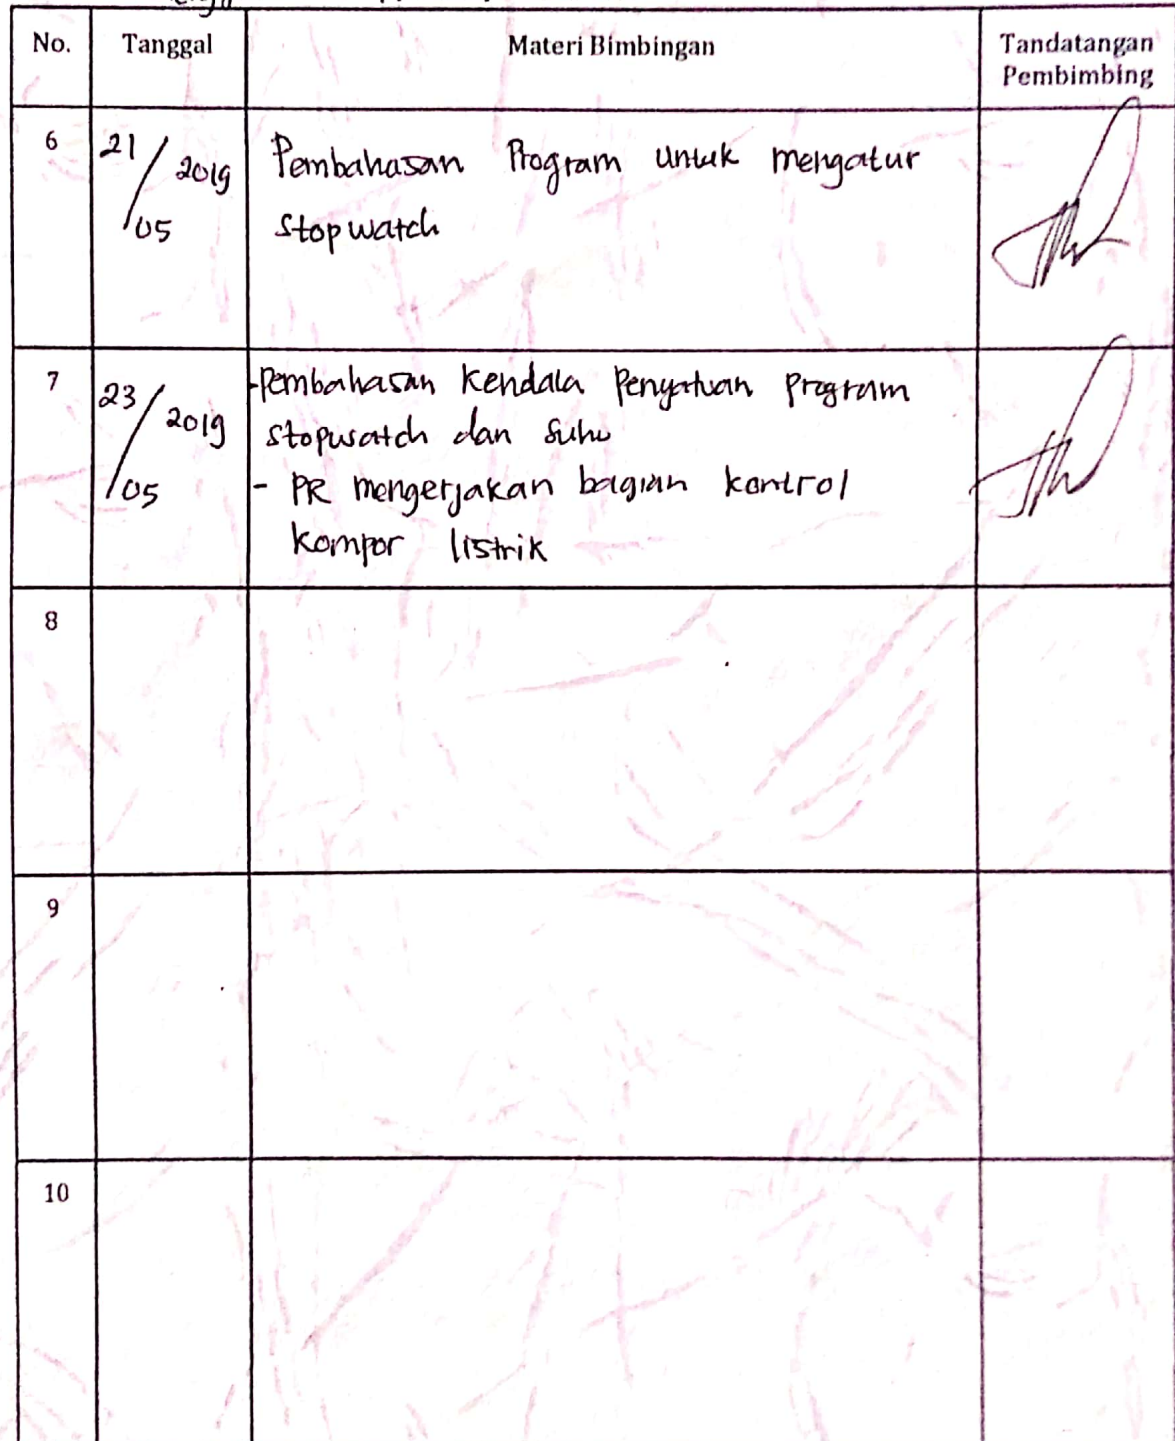 No. Tanggal Materi Bimbingan Tandatangan
Pembimbing
6 21/05 2019 Pembahasan Program Untuk mengatur
Stopwatch
7 23/05 2019 -Pembahasan Kendala Penyatuan program
Stopwatch dan Suhu
- PR mengerjakan bagian kontrol
kompor listrik
8
9
10